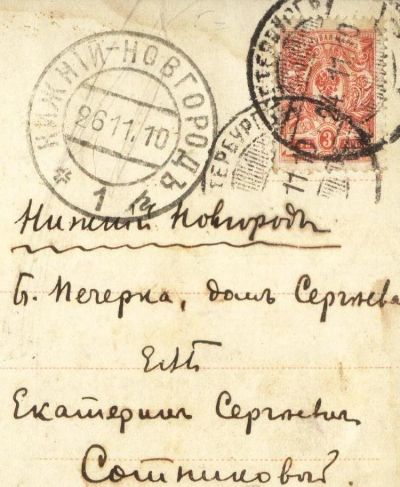 НИЖНІЙ-НОВГОРОДЪ
26 11. 10
* 1 *
ТЕРБУРГ
24 11 10
11.10
3
Нижній Новгородъ
Б. Печерка, домъ Сергѣева
ЕМБ
Екатеринѣ Сергѣевнѣ
Сотниковой.